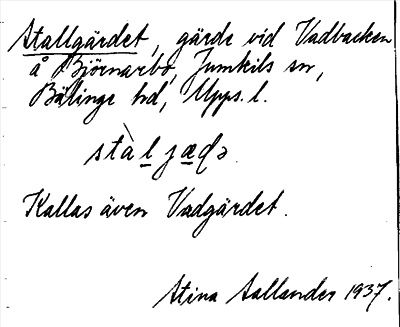 Stallgärdet, gärde vid Vadbacken
å Björnarbo, Jumkils sn,
Bälinge hd, Upps. l.
stàljæɖə
Kallas även Vadgärdet.
Stina Sallander 1937.